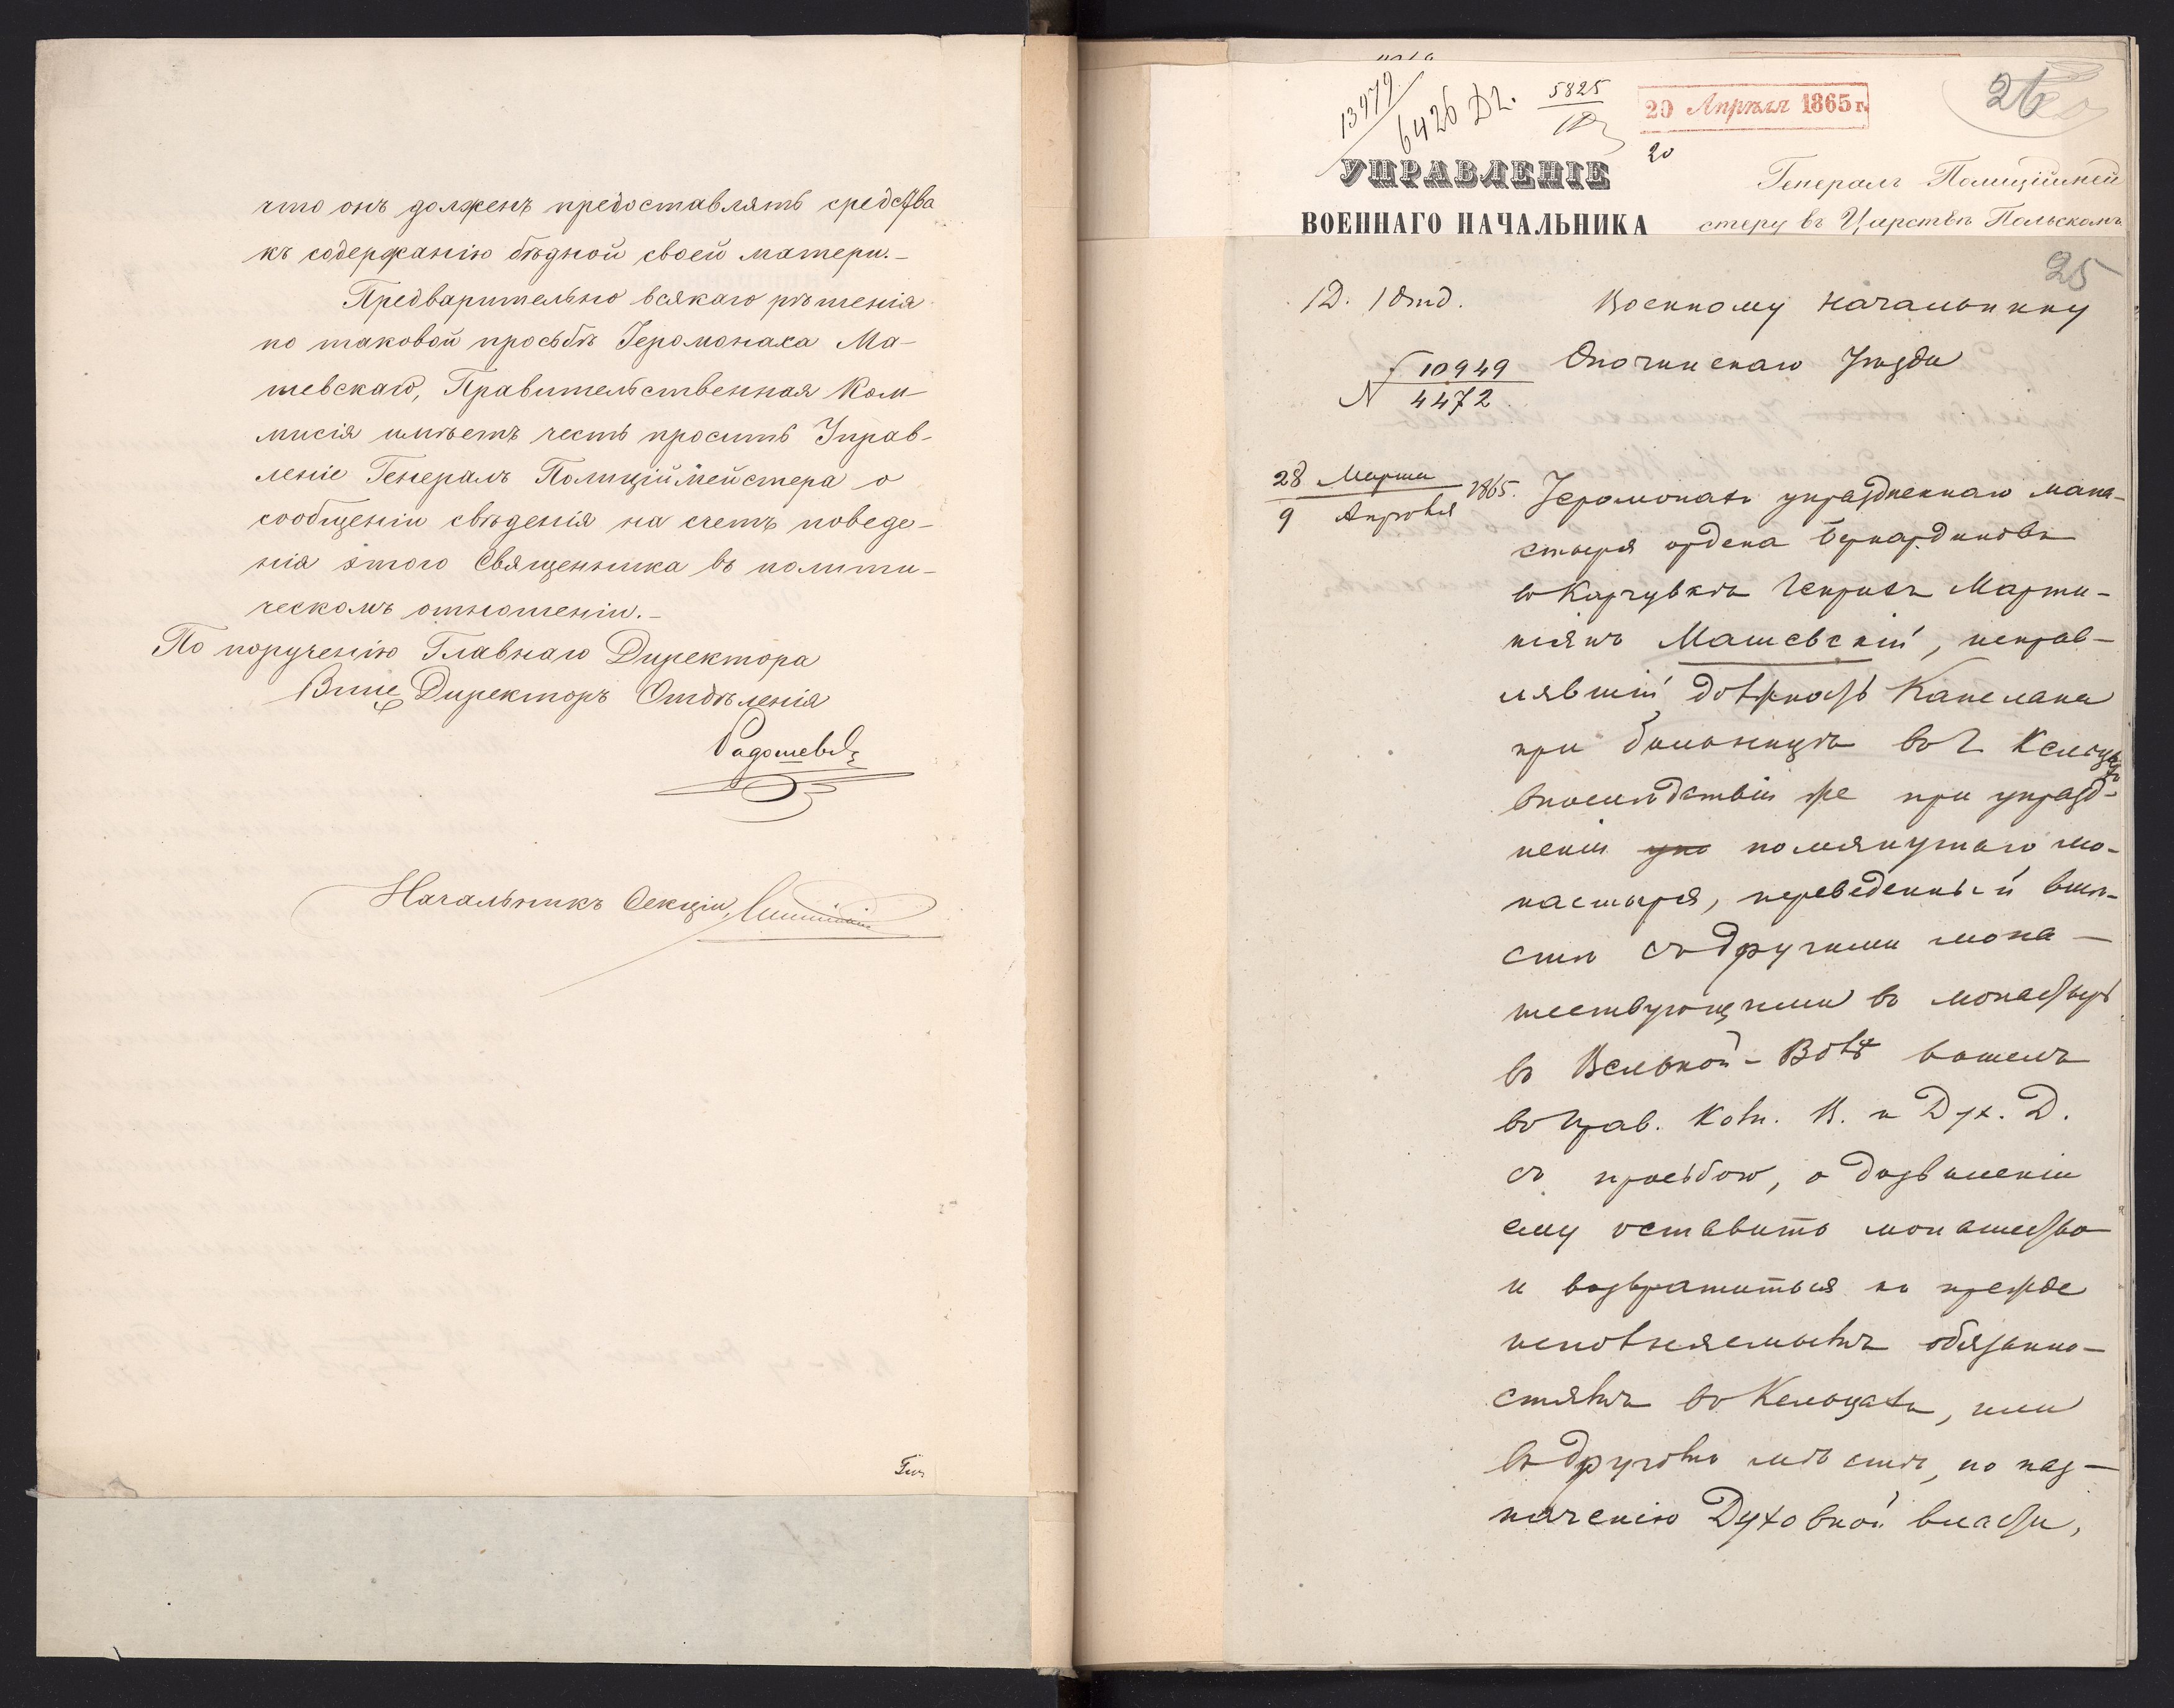 что онъ долженъ предоставлять средства
къ содержанію бѣдной своей матери.–
Предварительно всякаго рѣшенія
по таковой просьбѣ Іеромонаха Ма–
шевскаго, Правительственная Ком–
мисія имѣетъ честь просить Управ–
леніе Генералъ Полиціймейстера о
сообщеніи свѣденія на счетъ поведе–
нія этого Священника въ полити–
ческомъ отношеніи.–
По порученію Главнаго Директора
Вице Директоръ Отдѣленія
Начальникъ Секціи
13979
6426 Дл.
5825
20 Апрѣля 1865 г.
20
26
УПРАВЛЕНІЕ
ВОЕННАГО НАЧАЛЬНИКА
Генералъ Полиціймей
стеру въ Царствѣ Польскомъ
25
1Д. 1 Отд.
Военному Начальнику
Опочинскаго Уѣзда
N 10949
4472
28 Марта
9 Апрѣля 1865.
Іеромонахъ упраздненнаго мона–
стыря ордена Бернардиновъ
въ Карчувкѣ Генрихъ Марти–
ніянъ Машевскій, исправ–
лявшій должность Капелана
при больницѣ въ г. Кельцахъ
впослѣдствіи же при упразд–
неніи упо помянутаго мо–
настыря, переведенный вмѣ–
стѣ съ другими мона–
шествующими въ монастырь
въ Велькой–Волѣ вошелъ
въ Прав. Ком. В. и Дух. Д.
съ просьбою, о дозволеніи
ему оставить монашество
и возвратиться къ прежде
исполняемымъ обязанно–
стямъ въ Кельцахъ, или
въ другомъ мѣстѣ, по наз–
наченію Духовной власти,